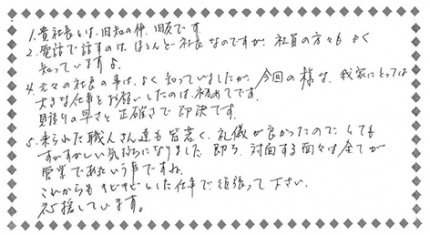 1. 貴社長とは、旧知の仲、旧友です
2. 電話で話すのは、ほとんど社長なのですが、社員の方々もよく
知っていますよ
4. 元々の社長の事は、よく知っていましたが、今回の様な、我家にとっては
大きな仕事をお願いしたのは初めてです。
見積りの早さと正確さで即決です。
5. 来られた職人さん達も皆若く、礼儀が良かったので、とても
すがすがしい気持ちになりました。即ち、対面する面々は全てが
営業であるという事ですね。
これからもキビキビとした仕事で頑張って下さい。
応援しています。